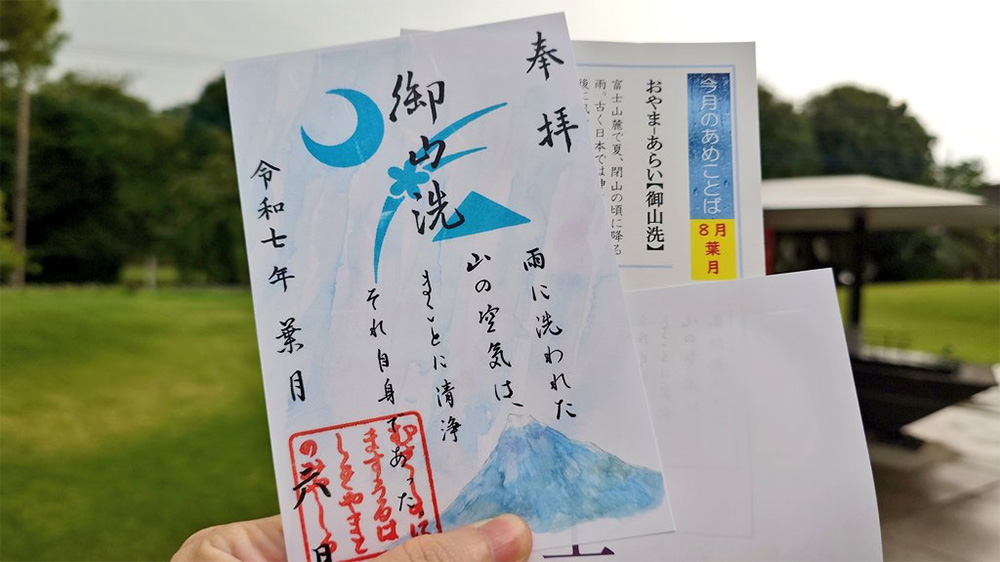 奉拝
御山洗
雨に洗われた
山の空気は、
まことに清浄
それ自身であった
令和七年葉月六日
今月のあめことば
8月
葉月
おやま–あらい【御山洗】
富士山麓で夏、閉山の頃に降る
雨。古く日本では